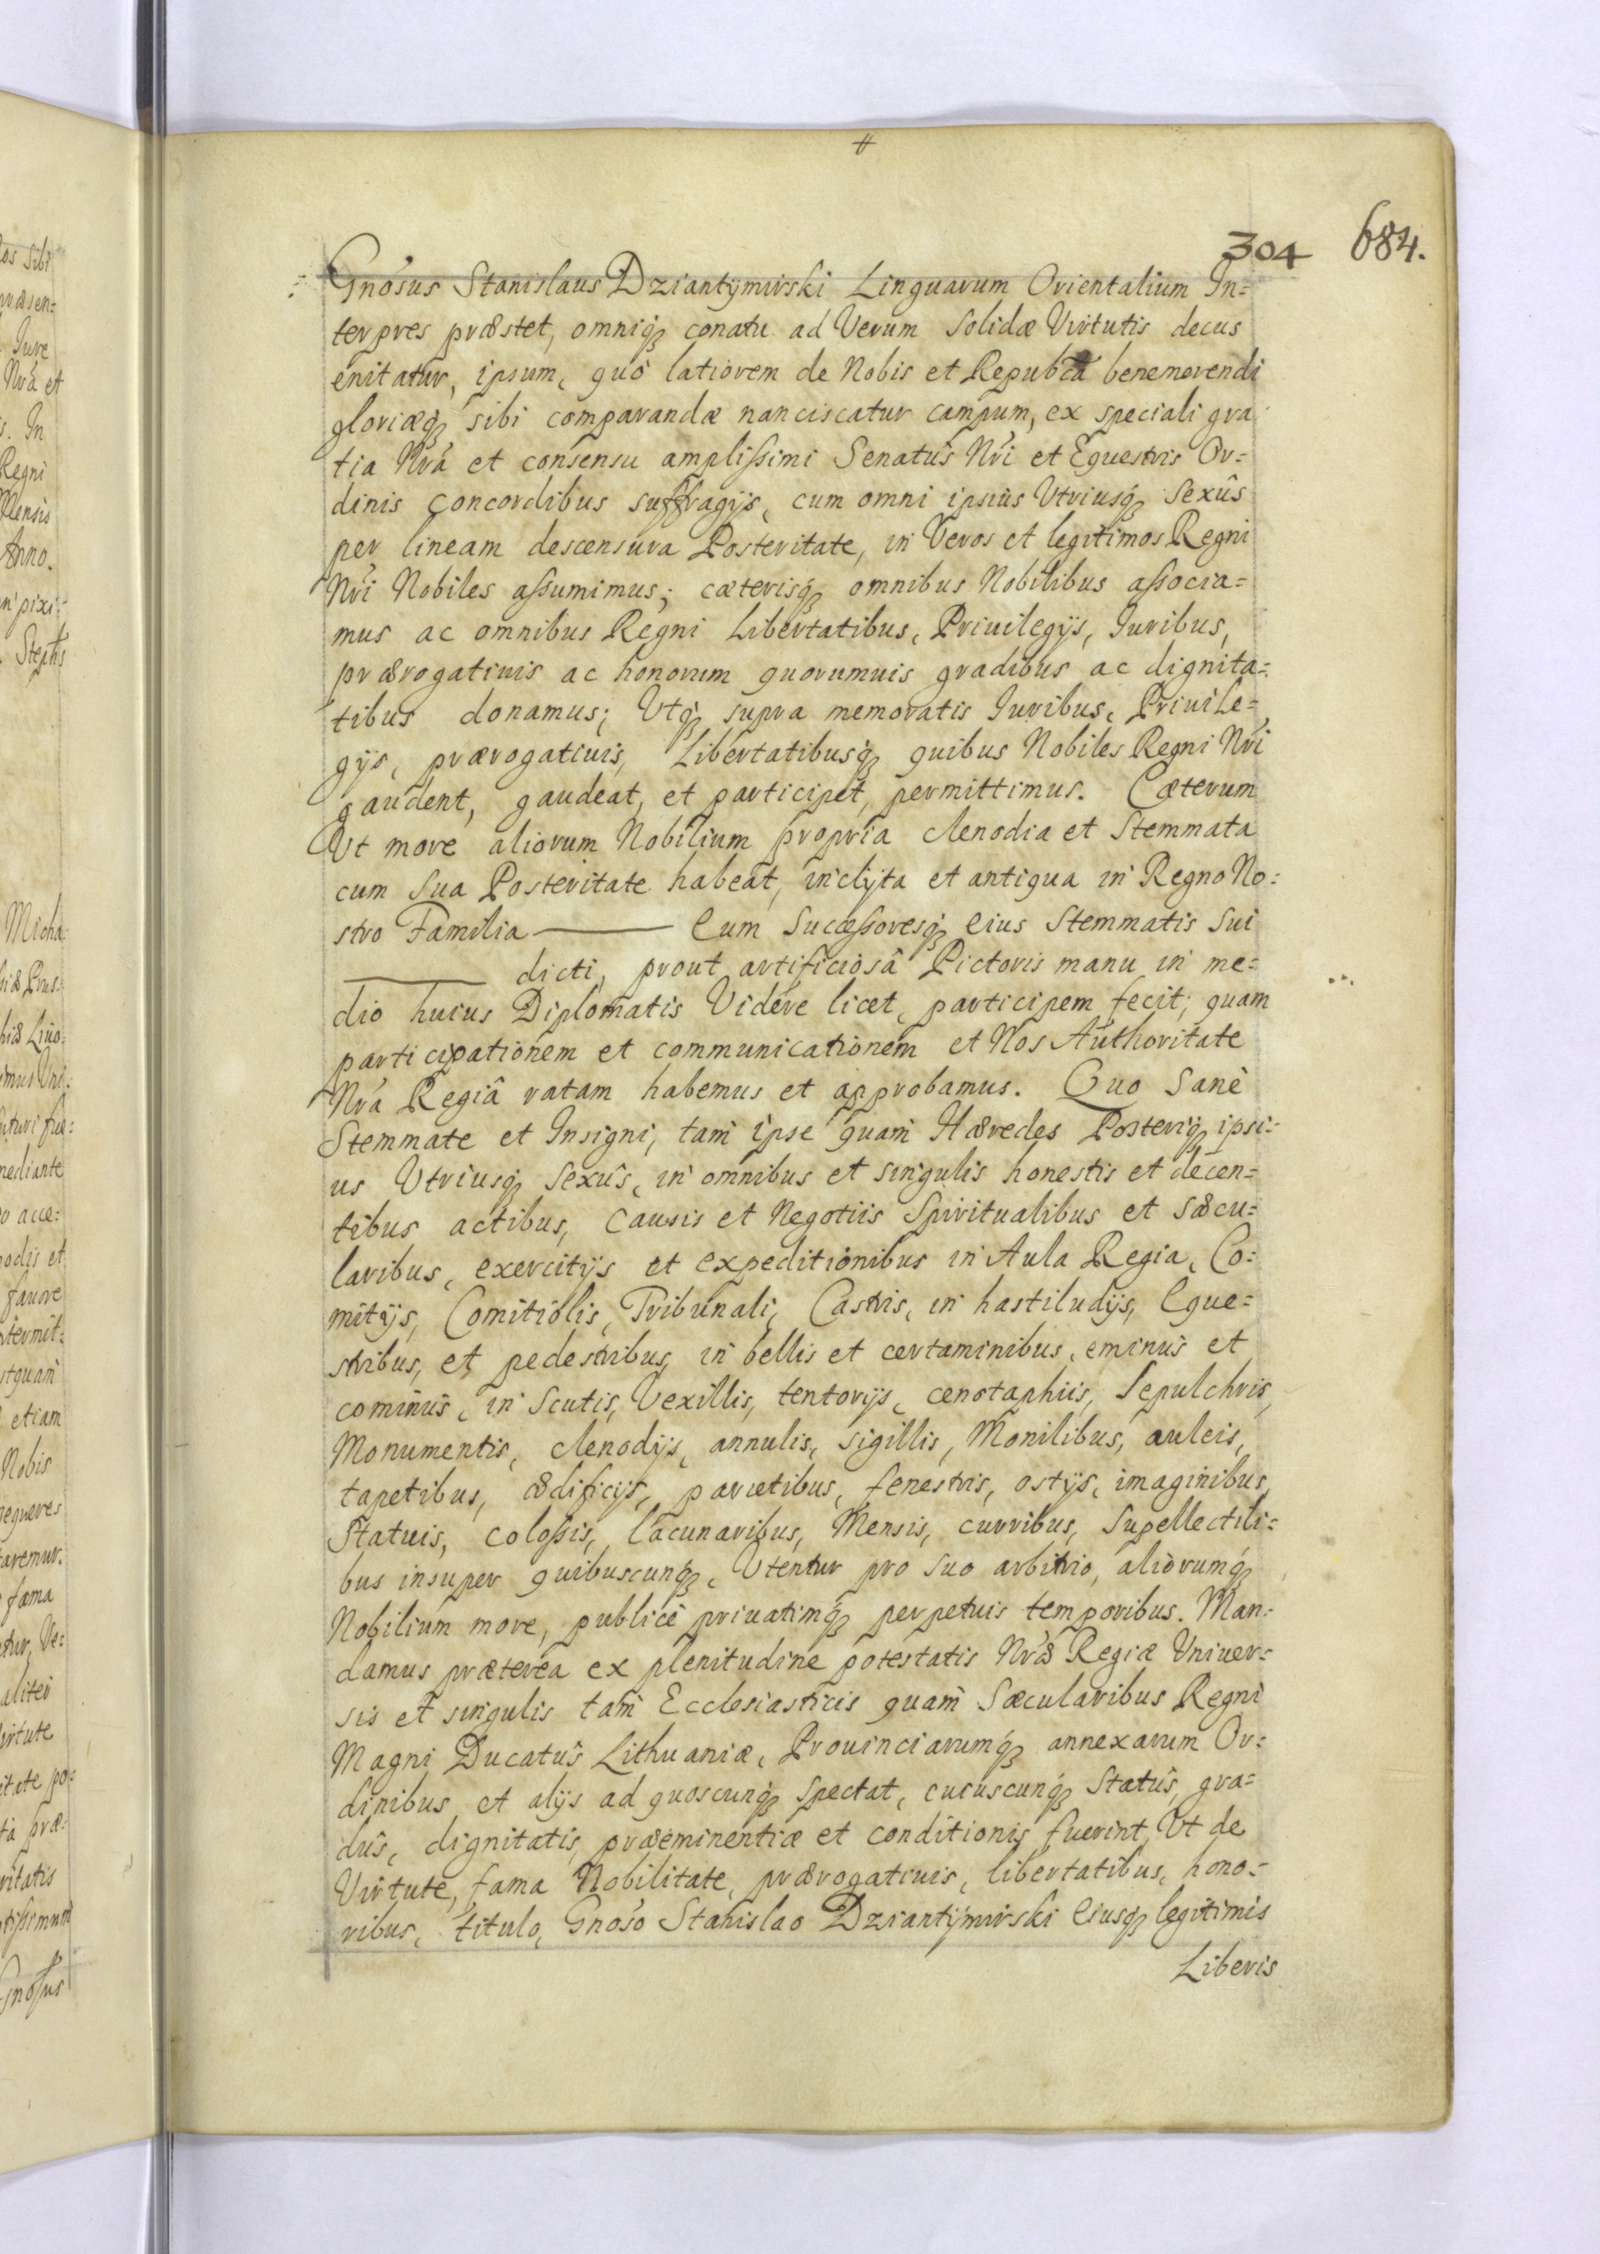 304 684.
Gnosus Stanislaus Dziantymirski Linguarum Orientalium In=
terpres præstet, omniq́ꝫ conatu ad Verum solidæ Virtutis decus
enitatur, ipsum, quò latiorem de Nobis et Repubca benemerendi
gloriæq́ꝫ sibi comparandæ nanciscatur campum, ex speciali gra
tia Nrá et consensu amplissimi Senatûs Nrí et Equestris Or=
dinis concordibus suffragijs, cum omni ipsius Utriusq́ꝫ sexûs
per lineam descensura Posteritate, in Veros et legitimos Regni
Nrí Nobiles assumimus; cæterisq́ꝫ omnibus Nobilibus associa=
mus ac omnibus Regni Libertatibus, Priuilegijs, Iuribus,
prærogatiuis ac honorum quorumuis gradibus ac dignita=
tibus donamus; Utq́ꝫ supra memoratis Iuribus, Priuile=
gijs, prærogatiuis, Libertatibusq́ꝫ quibus Nobiles Regni Nrí
gaudent, gaudeat, et participet, permittimus. Cæterum
Ut more aliorum Nobilium propria clenodia et Stemmata
cum sua Posteritate habeat, inclyta et antiqua in Regno No=
stro Familia ——— eum Successoresq́ꝫ eius Stemmatis sui
——— dicti, prout artificiosâ Pictoris manu in me=
dio huius Diplomatis Videre licet, participem fecit; quam
participationem et communicationem et Nos Authoritate
Nrá Regiâ ratam habemus et approbamus. Quo sanè
Stemmate et Insigni, tam ipse quam Hæredes Posteriq́ꝫ ipsi=
us Utriusq́ꝫ sexûs, in omnibus et singulis honestis et decen=
tibus actibus, causis et Negotiis Spiritualibus et sæcu=
laribus, exercitijs et expeditionibus in Aula Regia, Co=
mitijs, Comitiolis, Tribunali, Castris, in hastiludijs, Eque=
stribus, et pedestribus, in bellis et certaminibus, eminus et
cominûs, in Scutis, Vexillis, tentorijs, cenotaphiis, Sepulchris,
Monumentis, clenodijs, annulis, sigillis, Monilibus, auleis,
tapetibus, ædificijs, parietibus, fenestris, ostijs, imaginibus,
Statuis, colossis, lacunaribus, Mensis, curribus, Supellectili=
bus insuper quibuscunq́ꝫ, Utentur pro suo arbitrio, aliorumq́ꝫ
Nobilium more, publicè priuatimq́ꝫ perpetuis temporibus. Man=
damus præterea ex plenitudine potestatis Nræ Regiæ Univer=
sis et singulis tam Ecclesiasticis quam Sæcularibus Regni
Magni Ducatûs Lithuaniæ, Prouinciarumq́ꝫ annexarum Or=
dinibus et alijs ad quoscunq́ꝫ spectat, cuiuscunq́ꝫ Statûs, gra=
dûs, dignitatis, præeminentiæ et conditionis fuerint, Ut de
Virtute, fama Nobilitate, prærogatiuis, libertatibus, hono=
ribus, titulo, Gnoso Stanislao Dziantymirski eiusq́ꝫ legitimis
Liberis